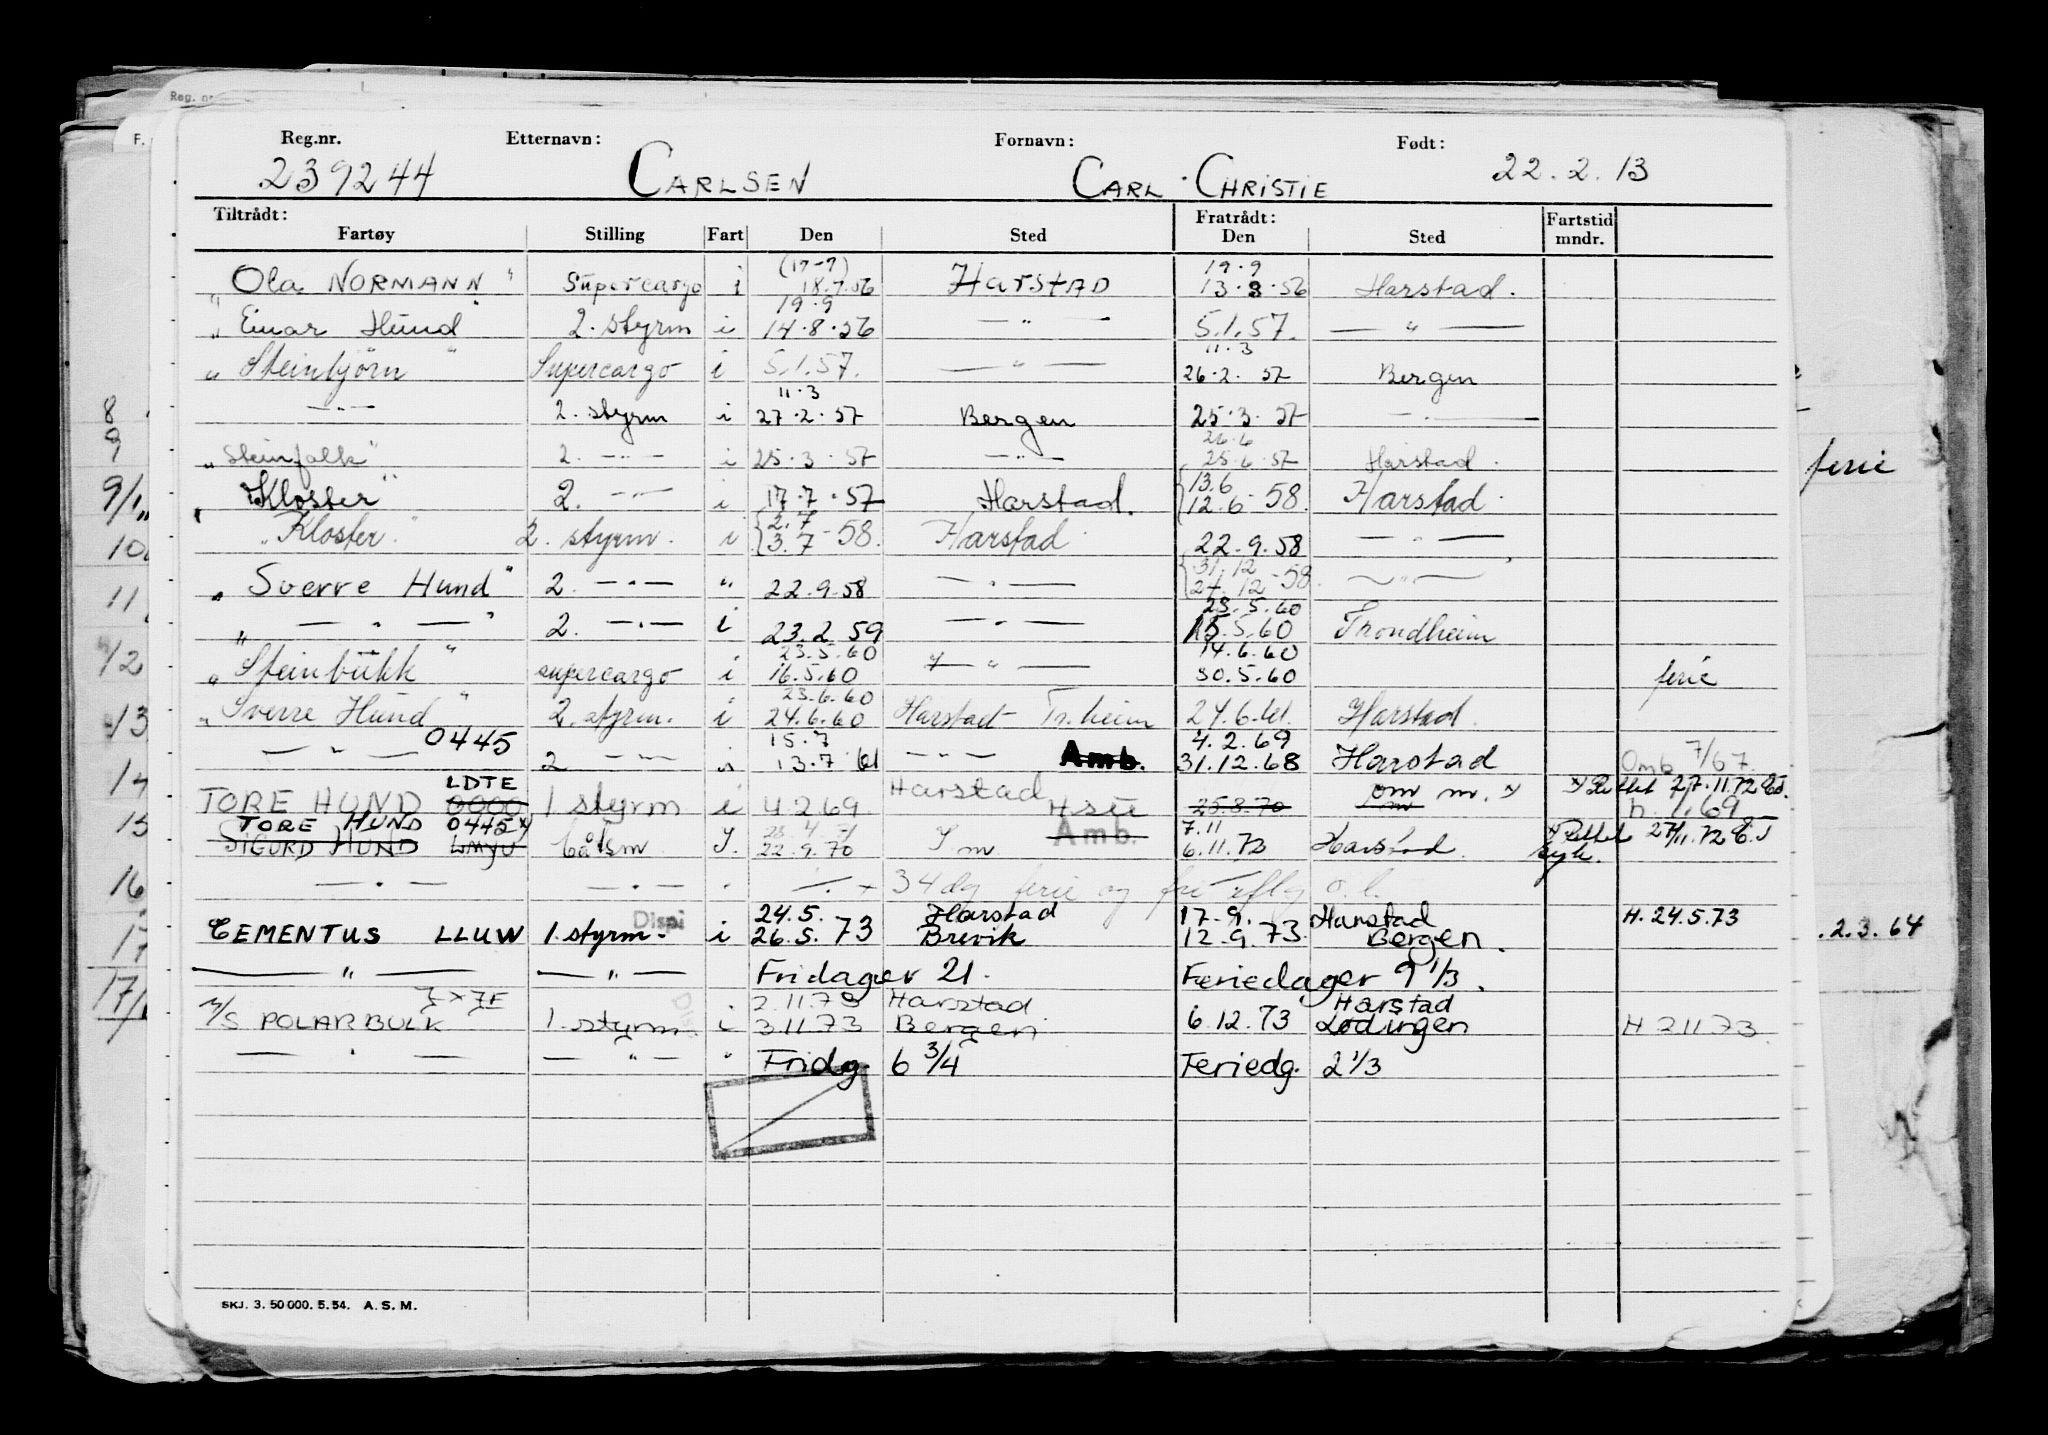 Reg.nr. Etternavn: Fornavn: Født:
239244 CARLSEN CARL CHRISTIE 22.2.13
Tiltrådt: Fratrådt: Fartstid
Fartøy Stilling Fart Den Sted Den Sted mndr.
(17-7) 19.9
"Ola NORMANN" Supercargo i 18.7.56 Harstad 13.8.56 Harstad.
19.9
"Einar Hund" 2. styrm i 14.8.56 — " — 5.1.57. — " —
11.3
"Steinbjörn" Supercargo i 5.1.57. — " — 26.2.57 Bergen
11.3
— " — 2. styrm i 27.2.57 Bergen 25.3.57 — " —
26.6
"Steinfalk" 2. — " — i 25.3.57 — " — 25.6.57 Harstad.
13.6
"Kloster" 2. — " — i 17.7.57 Harstad. 12.6-58. Harstad
2.7
"Kloster" 2. styrm. i 3.7-58. Harstad 22.9.58 — " —
31.12
"Sverre Hund" 2. — " — " 22.9.58 — " — 27.12-58. — " —
23.5.60
" — " — " 2. — " — i 23.2.59 — " — 15.5.60 Trondheim
23.5.60 14.6.60
"Steinbukk" supercargo i 16.5.60 — " — 30.5.60 ferie
23.6.60
"Sverre Hund" 2. styrm. i 24.6.60 Harstad Tr.heim 27.6.61. Harstad.
0445 15.7 4.2.69
— " — 2 — " — " 13.7 61 — " — Amb. 31.12.68 Harstad Omb 7/67.
LDTE Harstad om m. 27.11.72
TORE HUND 0000 1 styrm i 4.2.69. 25.8.70 h. 1.69
TORE HUND 0445 7.11 27/11.72
SIGURD HUND LMYU båtsm J. 22.9.70 Amb. 6.11.72 Harstad. syk.
— " — — " — 34 dg ferie og fri
24.5. Harstad 17.9. Harstad H. 24.5.73
CEMENTUS LLUW 1. styrm. Dispi i 26.5.73 Brevik 12.9.73. Bergen.
— " — — " — Fridager 21. Feriedager 9 1/3.
2.11.73 Harstad Harstad
M/S POLARBULK 1. styrm i 3.11.73 Bergen 6.12.73 Lødingen H 2.11.73.
— " — — " — " Fridg. 6 3/4 Feriedg. 2 1/3
SKJ. 3. 50 000. 5. 54. A. S. M.
8
9
9/1
10
11
12
13
14
15
16
17
17/1
ferie
.2.3.64